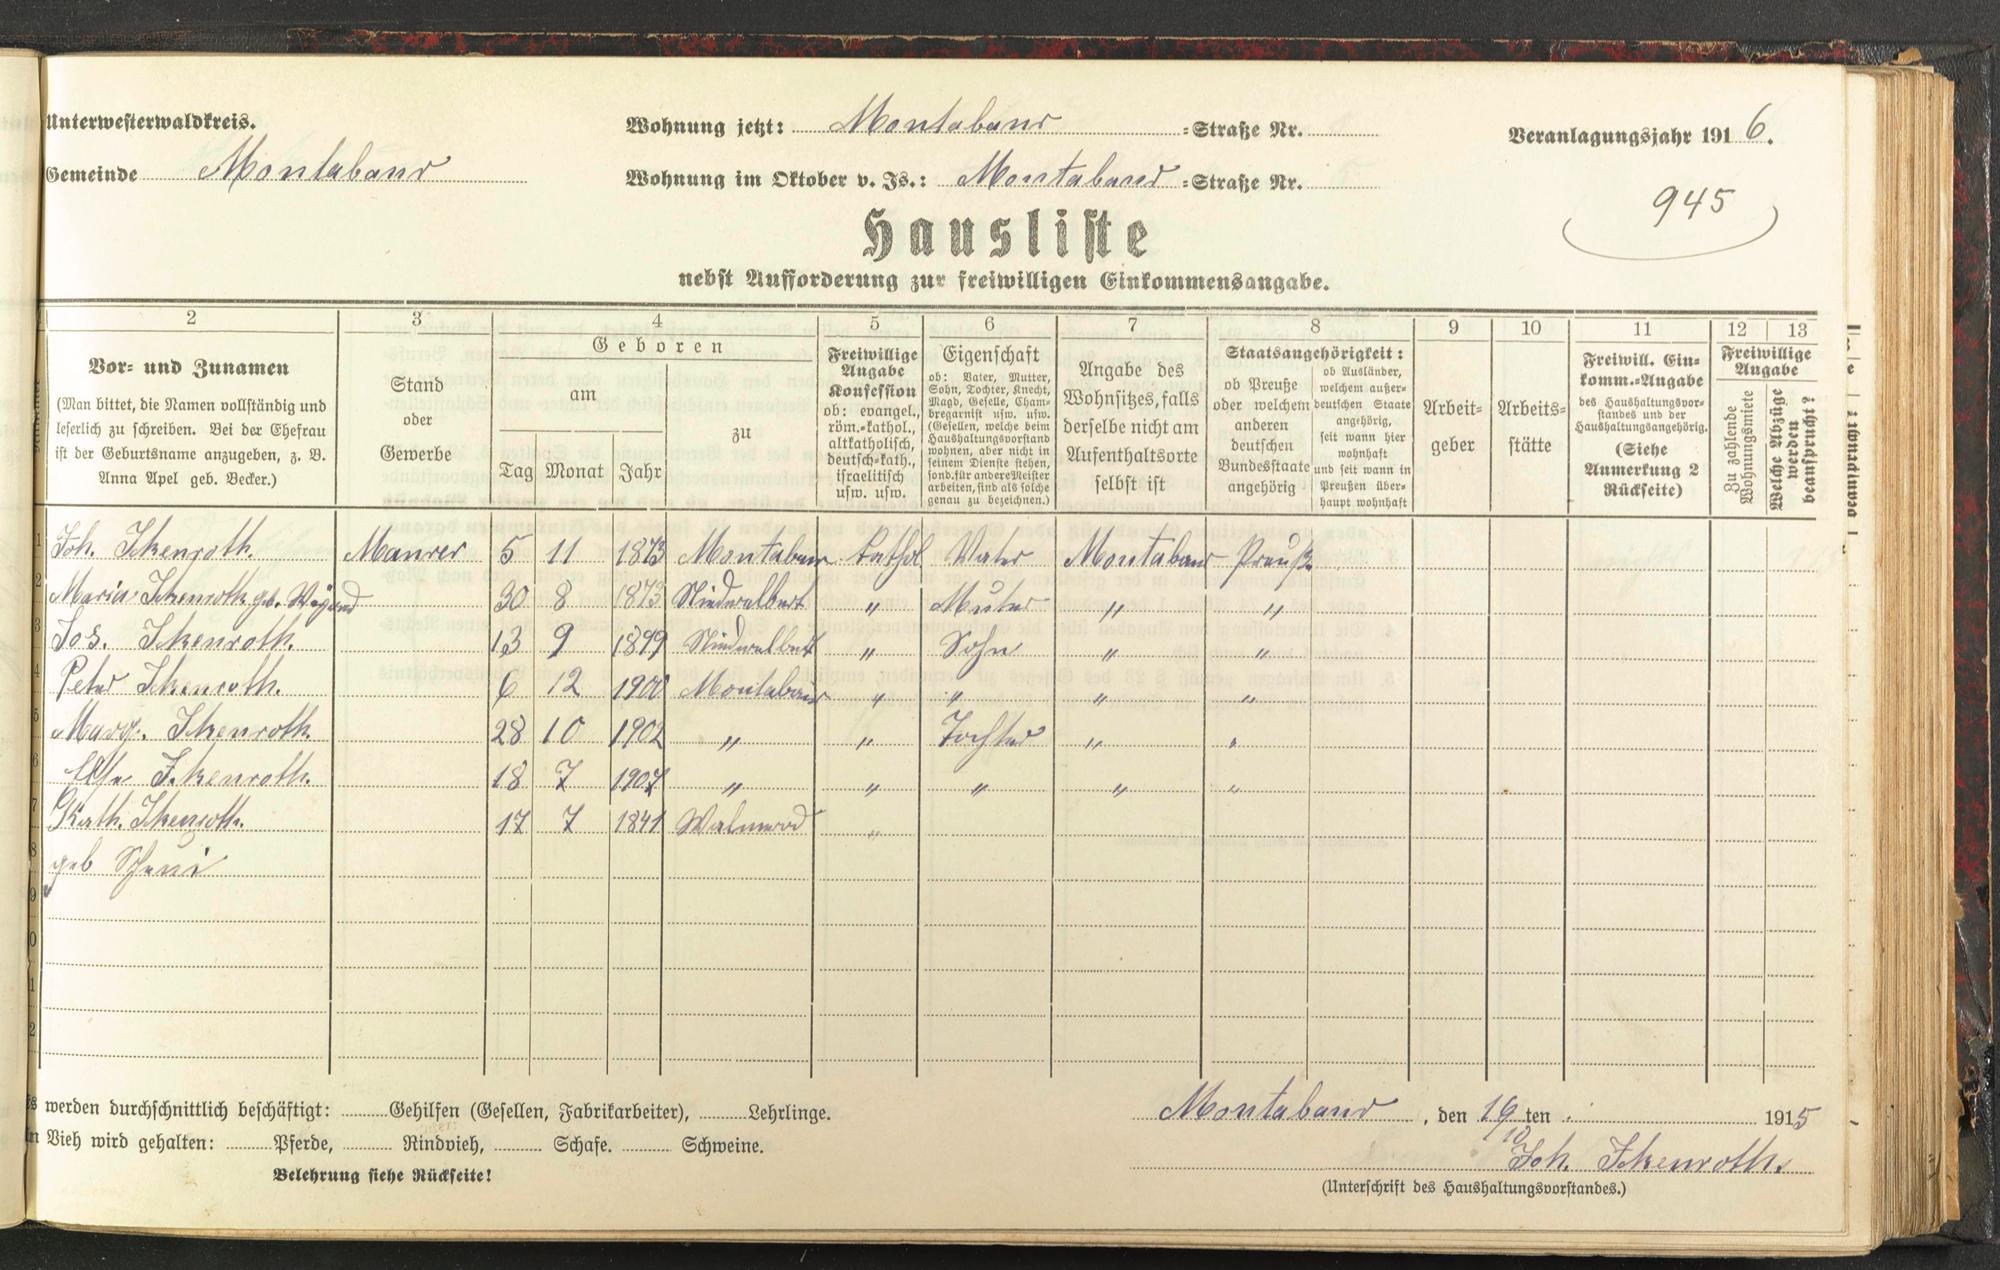 Unterwesterwaldkreis.
Wohnung jetzt: Montabaur =Straße Nr.
Veranlagungsjahr 1916.
Gemeinde Montabaur
Wohnung im Oktober v. Js.: Montabaur =Straße Nr.
945
Hausliste
nebst Aufforderung zur freiwilligen Einkommensangabe.
2 3 4 5 6 7 8 9 10 11 12 13
Vor= und Zunamen
(Man bittet, die Namen vollständig und
leserlich zu schreiben. Bei der Ehefrau
ist der Geburtsname anzugeben, z. B.
Anna Apel geb. Becker.)
Stand
oder
Gewerbe
Geboren
am
zu
Tag Monat Jahr
Freiwillige
Angabe
Konfession
ob: evangel.,
röm.=kathol.,
altkatholisch,
deutsch=kath.,
israelitisch
usw. usw.
Eigenschaft
ob: Vater, Mutter,
Sohn, Tochter, Knecht,
Magd, Geselle, Cham=
bregarnist usw. usw.
(Gesellen, welche beim
Haushaltungsvorstand
wohnen, aber nicht in
seinem Dienste stehen,
sond. für andere Meister
arbeiten, sind als solche
genau zu bezeichnen.)
Angabe des
Wohnsitzes, falls
derselbe nicht am
Aufenthaltsorte
selbst ist
Staatsangehörigkeit:
ob Preuße
oder welchem
anderen
deutschen
Bundesstaate
angehörig
ob Ausländer,
welchem außer=
deutschen Staate
angehörig,
seit wann hier
wohnhaft
und seit wann in
Preußen über=
haupt wohnhaft
Arbeit=
geber
Arbeits=
stätte
Freiwill. Ein=
komm.=Angabe
des Haushaltungsvor=
standes und der
Haushaltungsangehörig.
(Siehe
Anmerkung 2
Rückseite)
Freiwillige
Angabe
Zu zahlende
Wohnungsmiete
Welche Abzüge
werden
beansprucht?
1 Joh. Ickenroth. Maurer 5 11 1873 Montabaur kathol Vater Montabaur Preuß.
2 Maria Ickenroth geb. Weyand 30 8 1873 Niederelbert " Mutter " "
3 Jos. Ickenroth. 13 9 1899 Niederelbert " Sohn " "
4 Peter Ickenroth. 6 12 1900 Montabaur " " " "
5 Marg. Ickenroth 28 10 1902 " " Tochter " "
6 Ickenroth. 18 7 1907 " " " " "
7 Kath. Ickenroth. 17 7 1841 Walmerod "
8 geb
9
0
1
2
werden durchschnittlich beschäftigt: Gehilfen (Gesellen, Fabrikarbeiter), Lehrlinge.
Vieh wird gehalten: Pferde, Rindvieh, Schafe. Schweine.
Belehrung siehe Rückseite!
Montabaur, den 19 ten 1915
10
Joh. Ickenroth.
(Unterschrift des Haushaltungsvorstandes.)